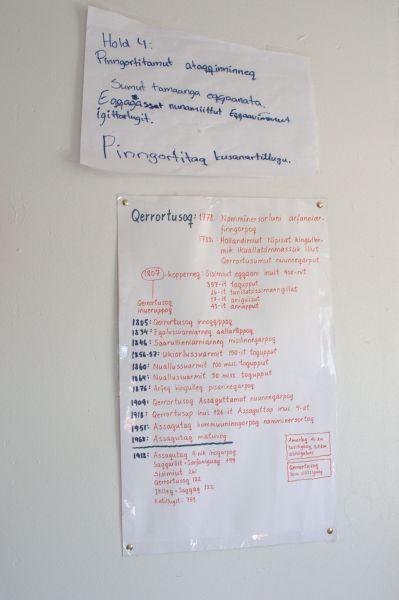 Hold 4:
Pinngortitamut ataqqinninneq
Sumut tamaanga eqqaanata.
Eqqagassat nunamiittut Eqqaavimmut
igittarlugit.
Pinngortitaq kusanartillugu.
Qerrortusoq: 1778 Namminersorluni arfanniar-
finngorpoq
Hollandimut Nipisat kinguller-
mik ikuallatsimmassuk illut
Qerrortusumut nuunneqarput
1807 - kopperneq: Sisimiut eqqaani inuit 400-nit
357-it toqupput
26-it
17-it
43-it annapput
Qerrortusoq
inueruppoq
1805: Qerrortusoq innoqqippoq
1834: Eqalussuarniarneq aallartippoq
1846: Saarullinniarniarneq misilinneqarpoq
1856-57: Ukiorlussuarmit 150-it toqupput
1860: Nuallussuarmit 100 miss. toqupput
1864: Nuallussuarmit 30 miss. toqupput
1876: Arfeq kingulleq pisarineqarpoq
1909: Qerrortusoq Assaguttamut nuunneqarpoq
1918: Qerrortusup inui 126-it Assaguttap inui 9-at
1951: Assagutaq kommuuninngorpoq namminersortoq
1968: Assagutaq matuvoq
1918: Assagutaq 9-nik inoqarpoq
Saqqarliit + Sarfannguaq 199
Sisimiut 261
Qerrortusoq 122
Ikilleq + Saqqaq 122
Katillugit: 759
Qerrortusoq